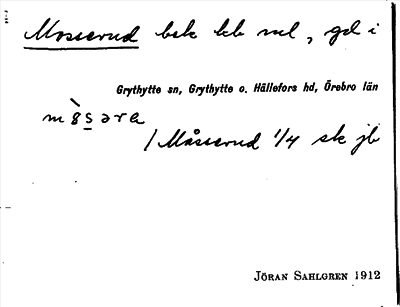 Mosserud bek lek vel, gd i
Grythytte sn, Grythytte o. Hällefors hd, Örebro län
/ Måsserud 1/4 sk jb
JÖRAN SAHLGREN 1912